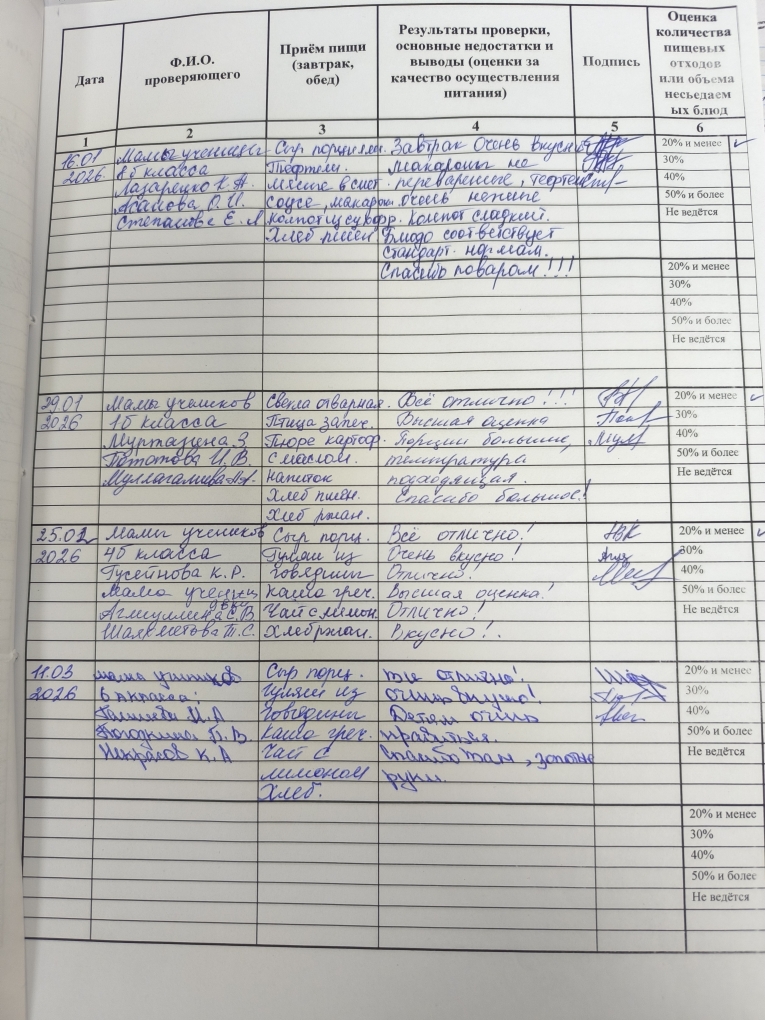 Дата
Ф.И.О. проверяющего
Приём пищи (завтрак, обед)
Результаты проверки, основные недостатки и выводы (оценки за качество осуществления питания)
Подпись
Оценка количества пищевых отходов или объема несъедаемых блюд
1 2 3 4 5 6
16.01 Мамы учениц Сыр порц Завтрак очень вкусный 20% и менее
2026 8б класса Тефтели. Макароны не 30%
Лазарецко К.А. мясные в смет. переваренные, тефтели 40%
Асамова О.И. соусе, макарон. очень нежные 50% и более
Степанова Е.А компот из сухофр. Компот сладкий. Не ведётся
Хлеб пшен Блюдо соответствует
стандарт. нормам.
Спасибо поварам!!! 20% и менее
30%
40%
50% и более
Не ведётся
29.01 Мамы учеников Свекла отварная. Всё отлично!!! 20% и менее
2026 1б класса Птица запеч. Высшая оценка 30%
Муртазина З Пюре картоф. Порции большие, 40%
И.В. с маслом. температура 50% и более
напиток подходящая. Не ведётся
Хлеб пшен. Спасибо большое!
Хлеб ржан.
25.02 Мамы учеников Сыр порц. Всё отлично! 20% и менее
2026 4б класса Гуляш из Очень вкусно! 30%
Гусейнова К.Р. говядины Отлично! 40%
мама каша греч. Высшая оценка! 50% и более
Агмуллина С.В. Чай с лимон. Отлично! Не ведётся
Шаяхметова Т.С. Хлеб ржан. Вкусно!
11.03 мамы учеников Сыр порц. все отлично! 20% и менее
2026 класса: гуляш из очень вкусно! 30%
И.А говядины Детям очень 40%
П.В. каша греч. нравится. 50% и более
Некрасов К.А Чай с спасибо Вам, золотые Не ведётся
лимоном руки.
Хлеб.
20% и менее
30%
40%
50% и более
Не ведётся